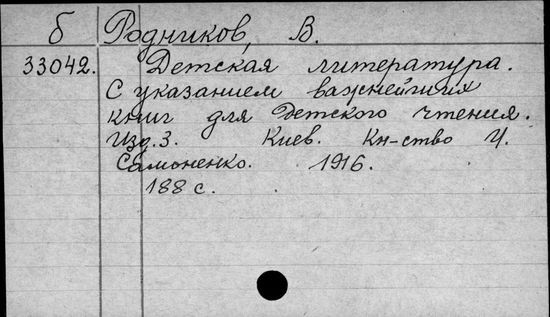 б Родников, В.
33042. Детская литература.
С указанием важнейших
книг для Детского чтения.
Изд. 3. Киев. Кн-ство И.
Самоненко. 1916.
188 с.